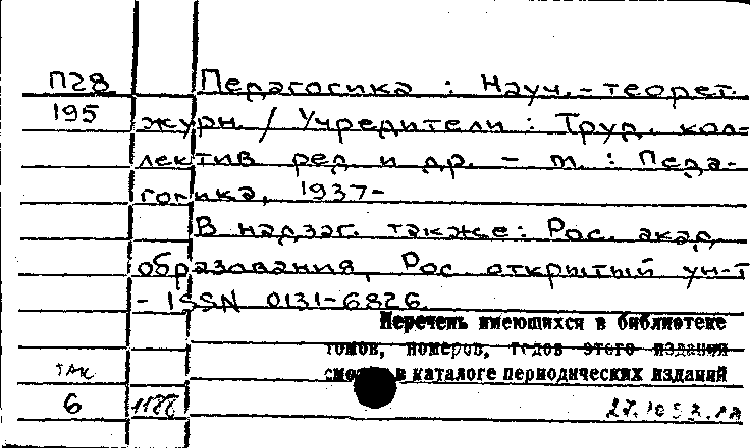 П28 Педагогика : Науч.-теорет.
195 журн. / Учредители : Труд. кол-
лектив ред. и др. - м. : Педа-
гогика, 1937-
В надзаг. также: Рос. акад.
образования, Рос. открытый ун-т
- ISSN 0131-6826.
Перечень имеющихся в библиотеке
томов, номеров, годов этого издания
смотри в каталоге периодических изданий
6 1188